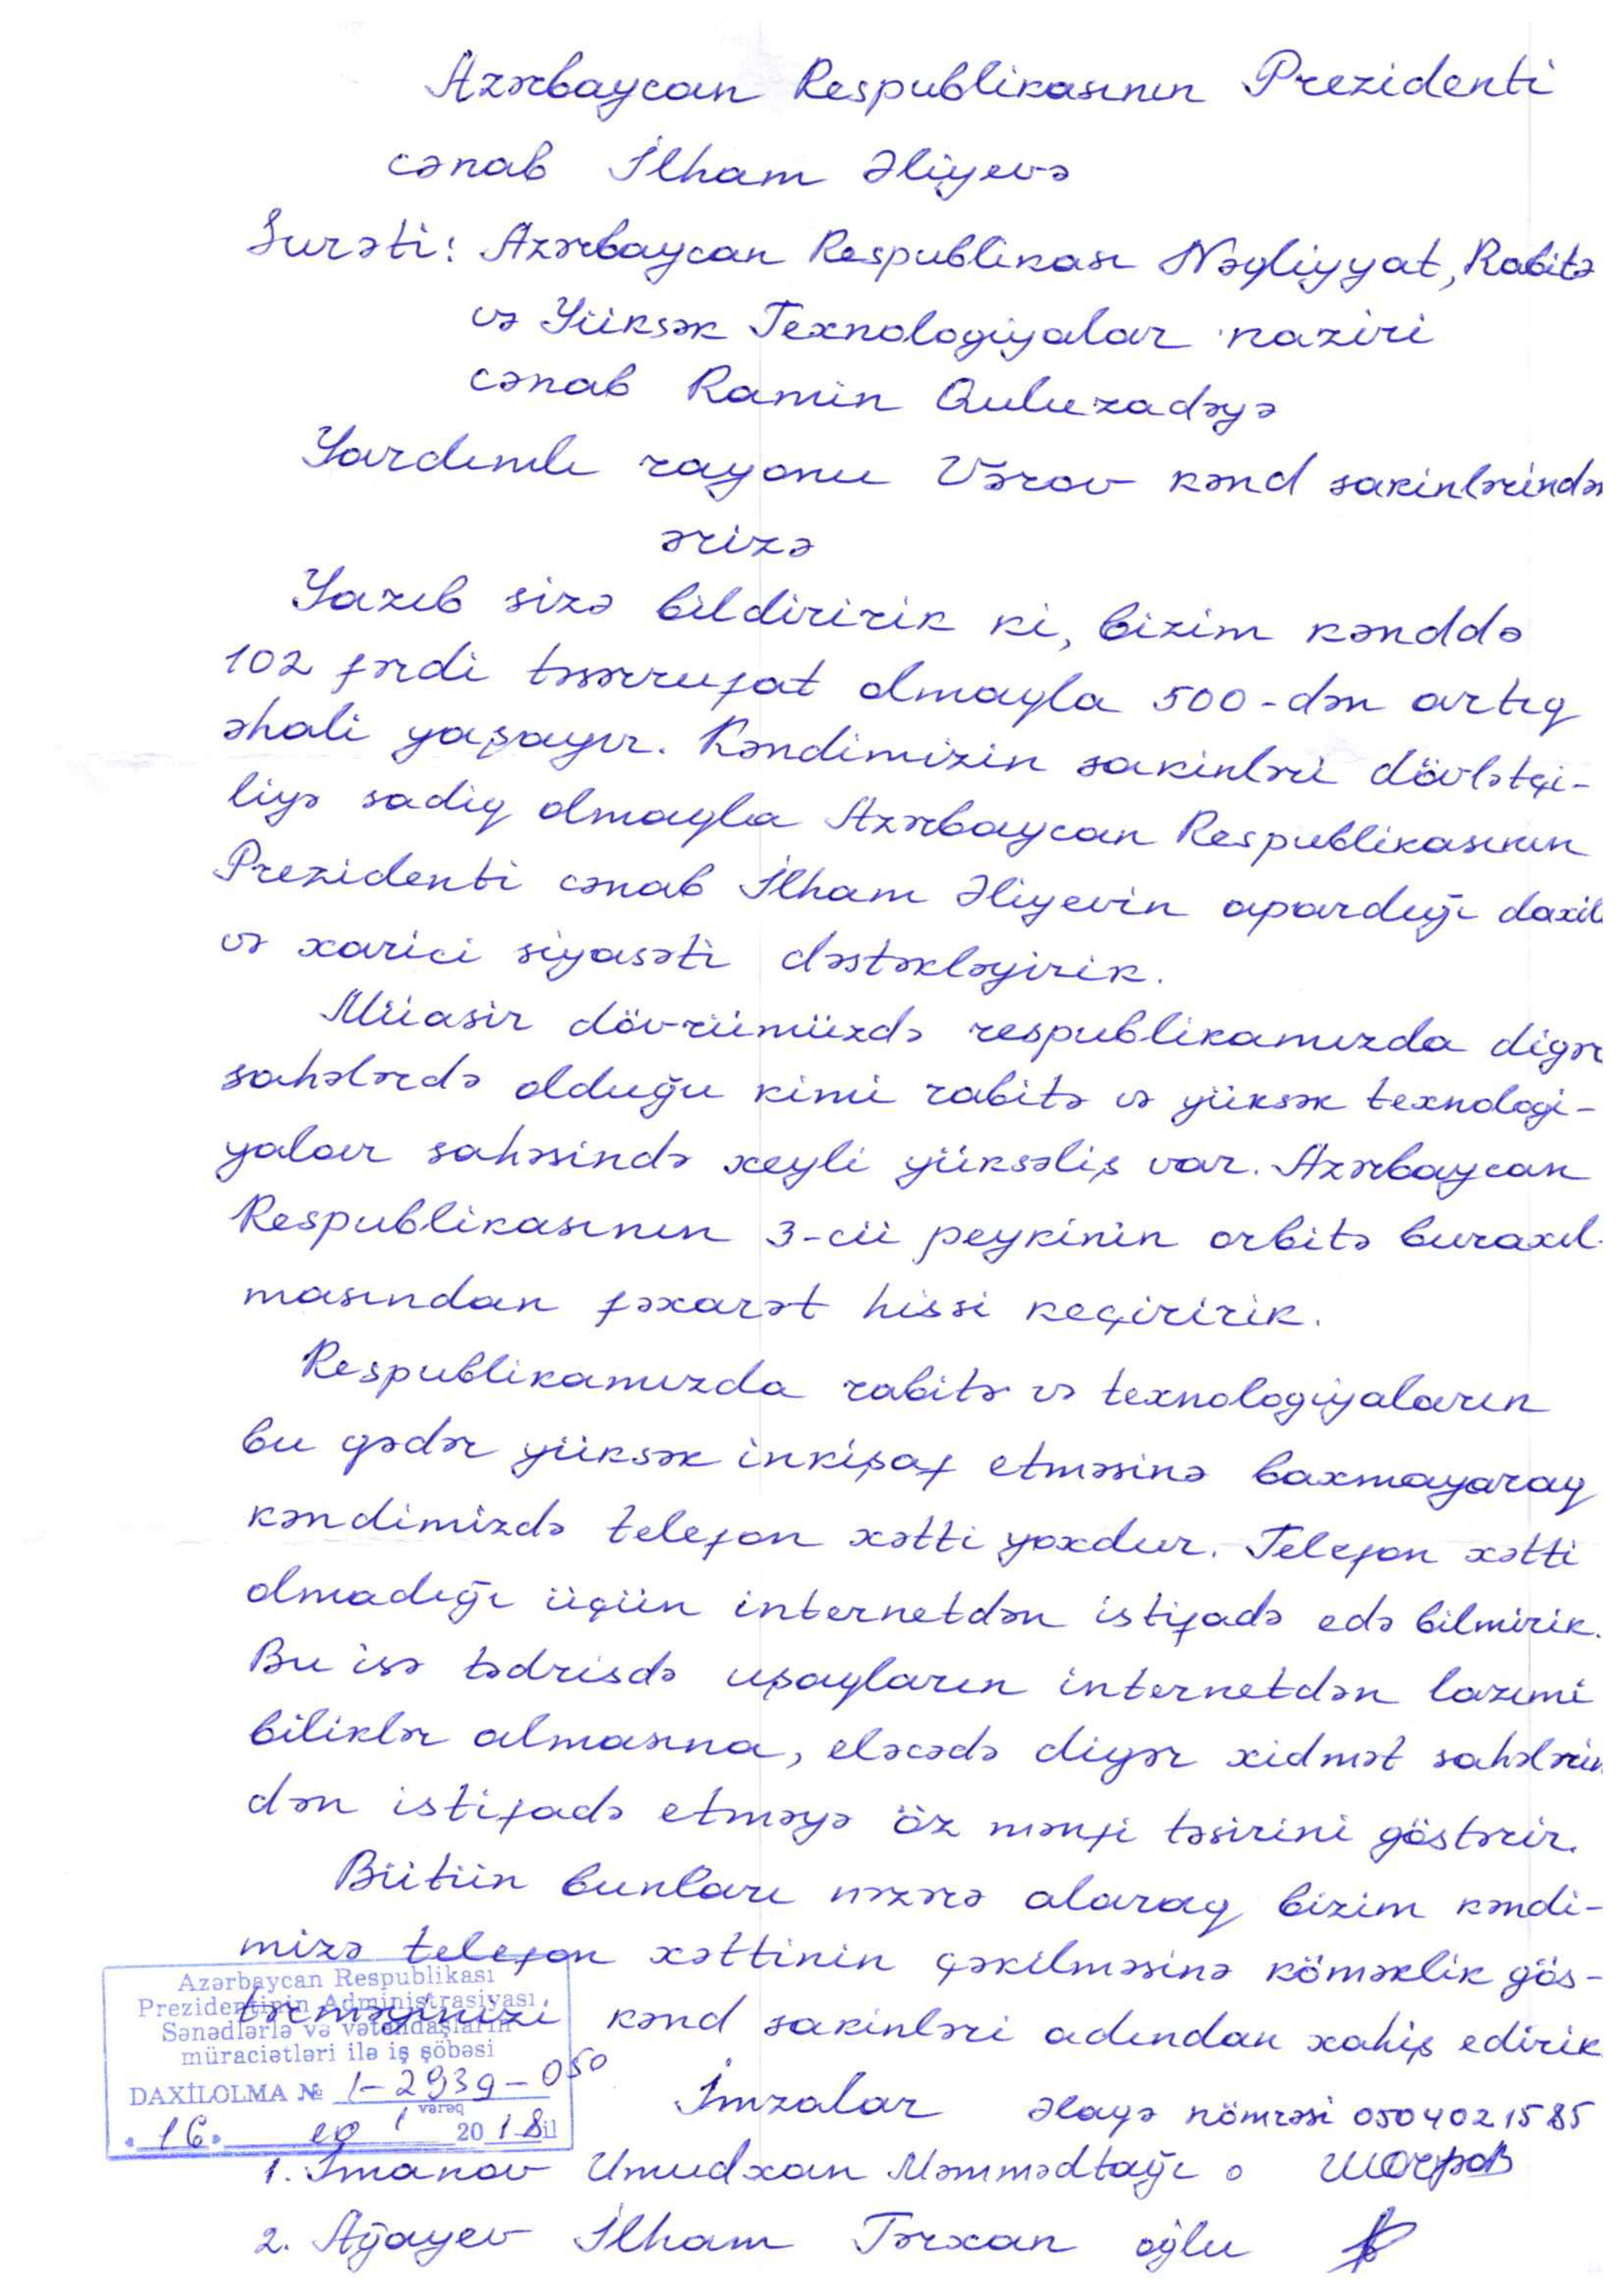 Azərbaycan Respublikasının Prezidenti
cənab İlham Əliyevə
Surəti: Azərbaycan Respublikası Nəqliyyat, Rabitə
və Yüksək Texnologiyalar naziri
cənab Ramin Quluzadəyə
Yardımlı rayonu Vərov kənd sakinlərindən
ərizə
Yazıb sizə bildiririk ki, bizim kənddə
102 fərdi təsərrufat olmaqla 500-dən artıq
əhali yaşayır. Kəndimizin sakinləri dövlətçi-
liyə sadiq olmaqla Azərbaycan Respublikasının
Prezidenti cənab İlham Əliyevin apardığı daxili
və xarici siyasəti dəstəkləyirik.
Müasir dövrümüzdə respublikamızda digər
sahələrdə olduğu kimi rabitə və yüksək texnologi-
yalar sahəsində xeyli yüksəliş var. Azərbaycan
Respublikasının 3-cü peykinin orbitə buraxıl-
masından fəxarət hissi keçiririk.
Respublikamızda rabitə və texnologiyaların
bu qədər yüksək inkişaf etməsinə baxmayaraq
kəndimizdə telefon xətti yoxdur. Telefon xətti
olmadığı üçün internetdən istifadə edə bilmirik.
Bu isə tədrisdə uşaqların internetdən lazımi
biliklər almasına, eləcədə digər xidmət sahələrin
dən istifadə etməyə öz mənfi təsirini göstərir.
Bütün bunları nəzərə alaraq bizim kəndi-
mizə telefon xəttinin çəkilməsinə köməklik gös-
tərməyinizi kənd sakinləri adından xahiş edirik
Azərbaycan Respublikası
Prezidentinin Administrasiyası
Sənədlərlə və vətəndaşların
müraciətləri ilə iş şöbəsi
DAXİLOLMA № 1-2939-050
vərəq
"16" 2018 il
İmzalar əlaqə nömrəsi 0504021585
1. İmanov Umudxan Məmmədtağı o
2. Ağayev İlham Tərxan oğlu